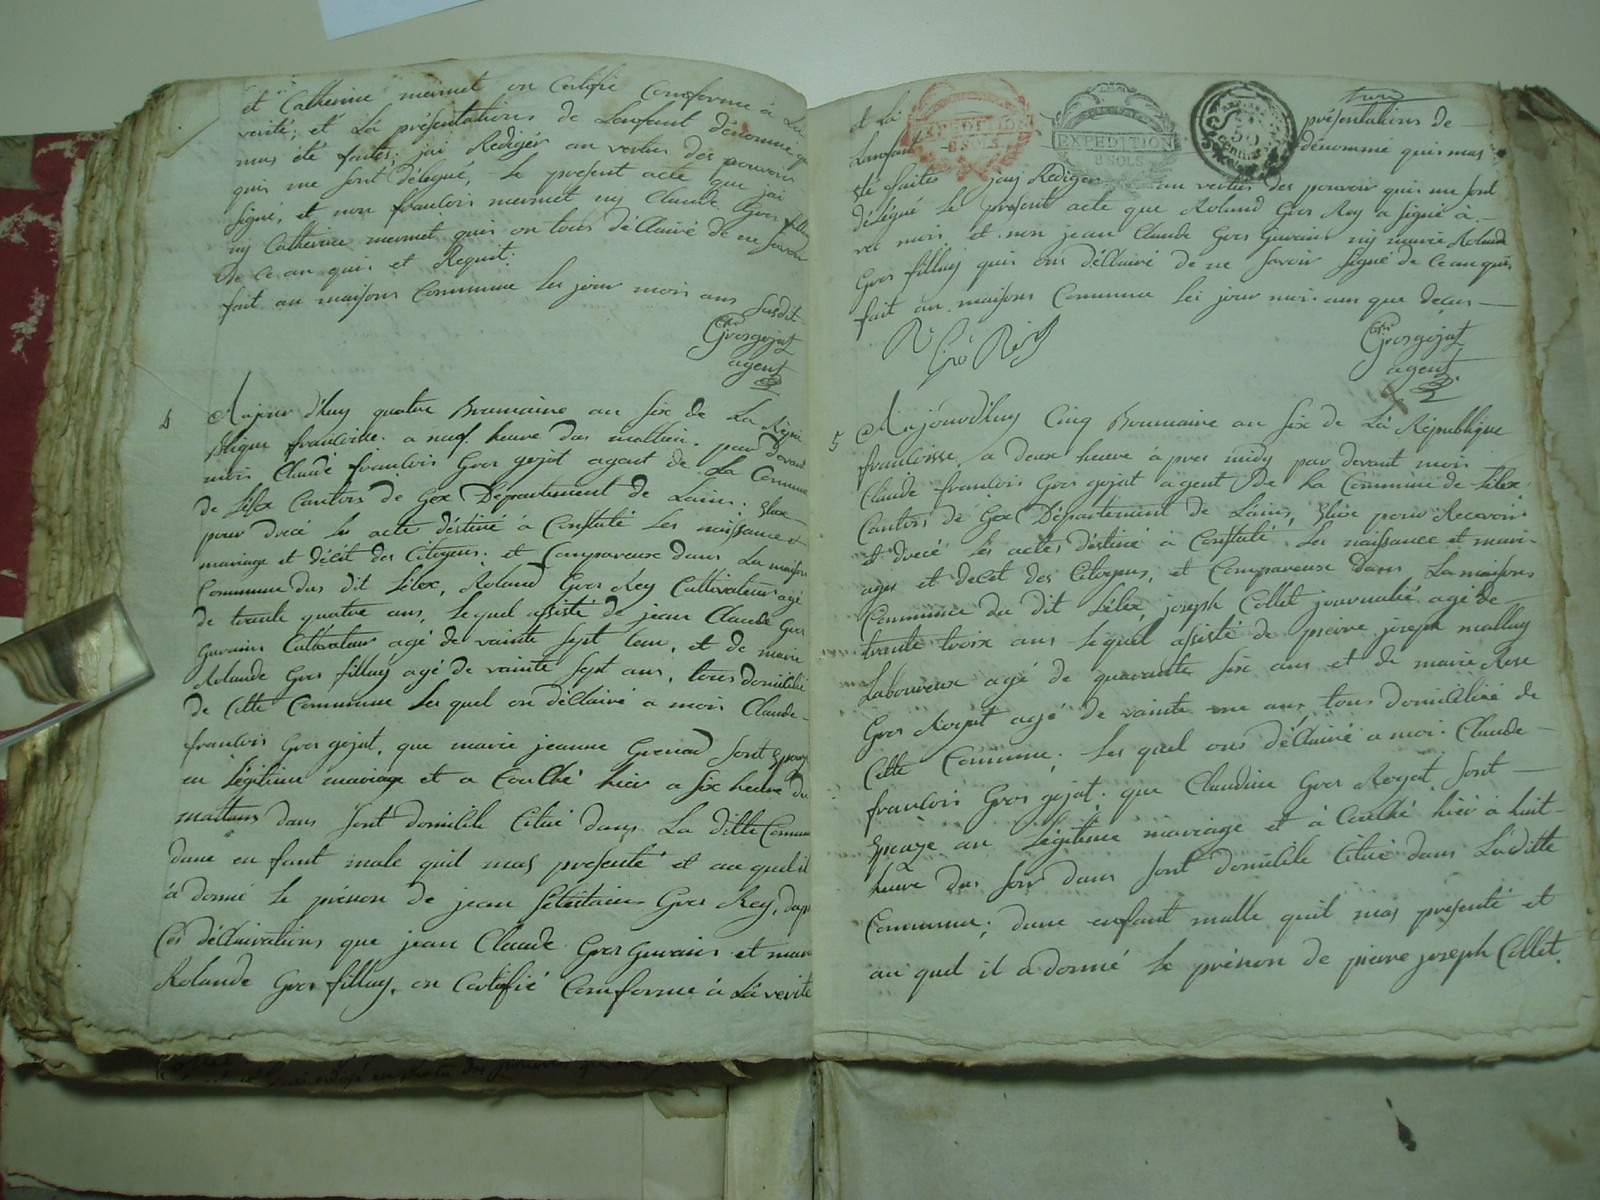 et Catherine mermet on Certifie Comforme à La
verité, et La présentations de Lenfant dénommé qui
mas été faites, jai Rediger au vertus des pouvoirs
quis me sont délegué, le present acte que jai
signé, et non franlois mermet ny Claude Gros filluy
ny Catherine mermet quis on tous déClairé de ne savoir
de Ce an quis et Requit.
fait au maisons Commune les jour mois ans susdit
Grosgojat
agent
4 Aujour dhuy quatre Brumaine an six de La Répu
blique franloise a neuf heure das mattien par devant
mois Claude franlois Gros gojat agent de La Commune
de Lélex Canton de Gex Département de Lains. Elue
pour drecé les acte déstiné à Constuté les naissance
mariage et décét des Citoyens. et Comparause dans La maison
Commune dus dit Lélex, Roland Gros Rey Cultivateur agé
de trante quatre ans, lequel assisté de jean Claude Gros
Guvains Cultivateur agé de vainte sept ans, et de marie
Rolande Gros filluy agé de vainte sept ans, tous domicilié
de Cette Commune les quel on déClairé a mois Claude
franlois Gros gojat, que marie jeanne Grenad sont Epouze
en légitime mariage et a CouChé hier a six heure du
mattiens dans sont domicile Citué dans La ditte Commune
dune en fant male quil mas presenté et au quel il
à donné le prénon de jean Gros Rey, dapr
Ces déClairations que jean Claude Gros Guvains et marie
Rolande Gros filluy, on Certifié Comforme à La verité
et La présentations de
Lenfant dénomme quis mas
EXPEDITION
8 SOLS
EXPEDITION
8 SOLS
50
été faites jaij Rediger au vertus des pouvoir quis me sont
délégué le present acte que Roland Gros Rey a signé à
vec mois et non jean Claude Gros Guvains ny marie Rolande
Gros filluy quis ons déClairé de ne savoir signé de Ce an quis
fait au maisons Commune les jour mois ans que decus
Ro Gro Reij
Grosgojat
agent
5 Aujourdhuy Cinq Brumaine an six de La République
franloisse a deux heure à pres midy par devant mois
Claude franlois Gros gojat agent de la Commune de Lélex
Canton de Gex Département de Lains, Elue pour Recevoir
et drecé les actes déstiné a Constuté les naissance et mari
ages et decét des Citoyens, et Comparause dans La maisons
Commune du dit Lélex joseph Collet journalié agé de
trante troix ans lequel assisté de pierre joseph malluy
Laboureux agé de quarante six ans et de marie Rose
Gros Rojat agé de vainte une ans, tous domicilié de
Cette Commune. les quel ons déClairé a moi. Claude
franlois Gros gojat. que Claudine Gros Rojat sont
Epouze an légitime mariage et à CouChé hier à huit
heure dus soir dans sont domicile Citué dans La ditte
Commune; dune enfant malle quil mas présenté et
au quel il a donné le prénon de pierre joseph Collet.